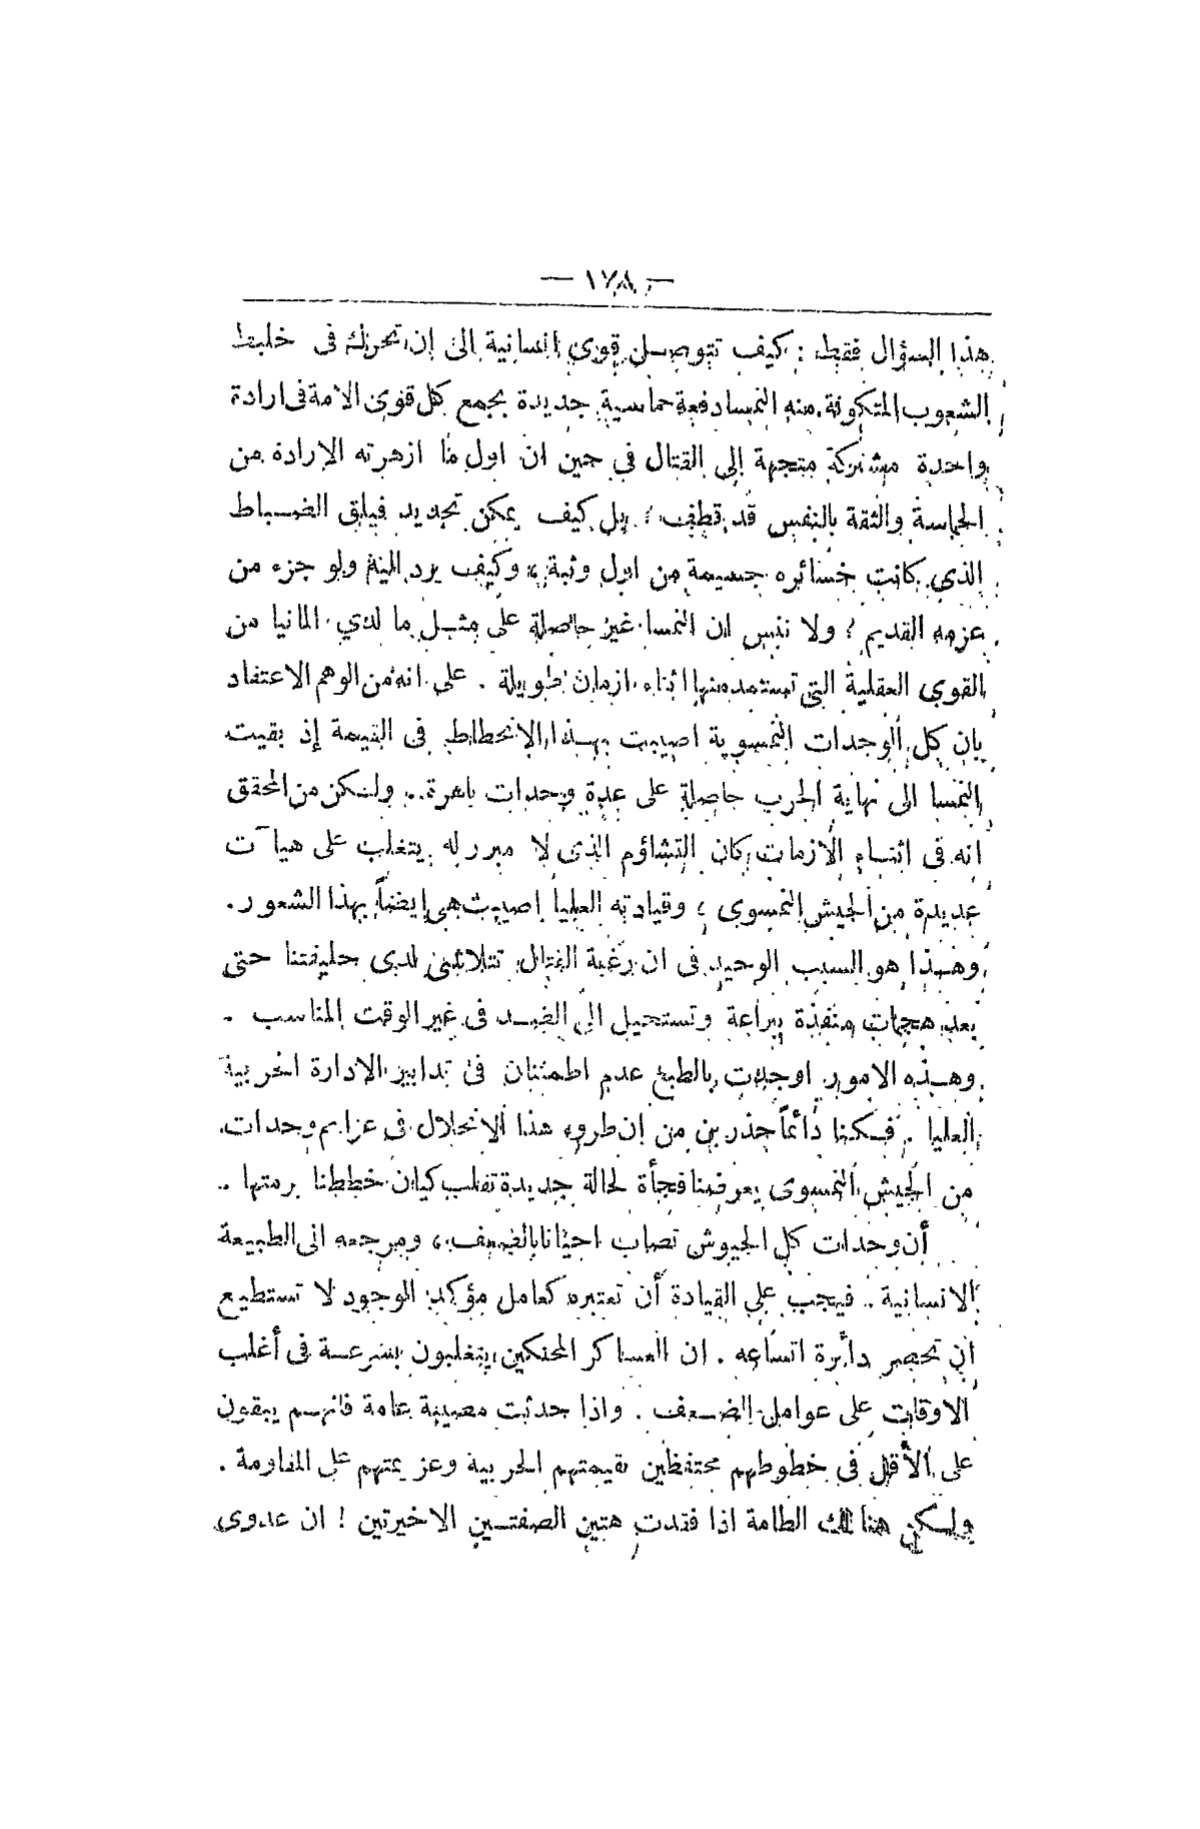 — ١٧٨ —
هذا السؤال فقط : كيف تتوصل قوى انسانية الى ان تحرك فى خليط
الشعوب المتكونة منه النمسا دفعة حماسية جديدة بجمع كل قوى الامة فى ارادة
واحدة مشتركة متجهة إلى القتال في حين ان اول ما ازهرته الارادة من
الحماسة والثقة بالنفس قد قطف ؛ بل كيف يمكن تجديد فيلق الضباط
الذي كانت خسائره جسيمة من اول وثبة ، وكيف يرد اليه ولو جزء من
عزمه القديم ؛ ولا ننس ان النمسا غير حاصلة على مثل ما لدي المانيا من
القوى العقلية التى تستمد منها اثناء ازمان طويلة . على انه من الوهم الاعتقاد
بان كل الوحدات النمسوية اصيبت بهذا الانحطاط فى القيمة إذ بقيت
النمسا الى نهاية الحرب حاصلة على عدة وحدات باهرة . ولكن من المحقق
انه فى اثناء الازمات كان التشاؤم الذى لا مبرر له يتغلب على هيآت
عديدة من الجيش النمسوى ؛ وقيادته العليا اصيبت هى ايضاً بهذا الشعور .
وهذا هو السبب الوحيد فى ان رغبة القتال تتلاشى لدى حليفتنا حتى
بعد هجمات منفذة ببراعة وتستحيل الى الضد فى غير الوقت المناسب .
وهذه الامور اوجدت بالطبع عدم اطمئنان فى تدابير الادارة الحربية
العليا . فكنا دائماً حذرين من ان طروء هذا الانحلال فى عزائم وحدات
من الجيش النمسوى يعرضنا فجأة لحالة جديدة تقلب كيان خططنا برمتها .
أن وحدات كل الجيوش تصاب احيانا بالضعف ، ومرجعه الى الطبيعة
الانسانية . فيجب على القيادة أن تعتبره كعامل مؤكد الوجود لا تستطيع
ان تحصر دأئرة اتساعه . ان العساكر المحنكين يتغلبون بسرعة فى أغلب
الاوقات على عوامل الضعف . واذا حدثت مصيبة عامة فانهم يبقون
على الأقل فى خطوطهم محتفظين بقيمتهم الحربية وعزيمتهم على المقاومة .
ولكن هنالك الطامة اذا فقدت هتين الصفتين الاخيرتين ! ان عدوى